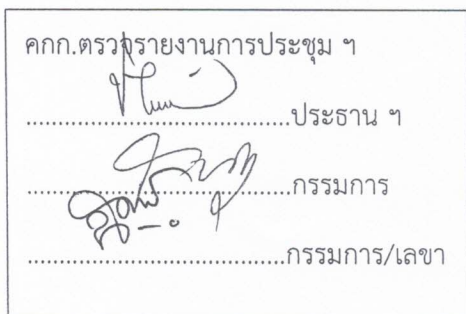 คกก.ตรวจรายงานการประชุม ฯ
......................................ประธาน ฯ
......................................กรรมการ
......................................กรรมการ/เลขา